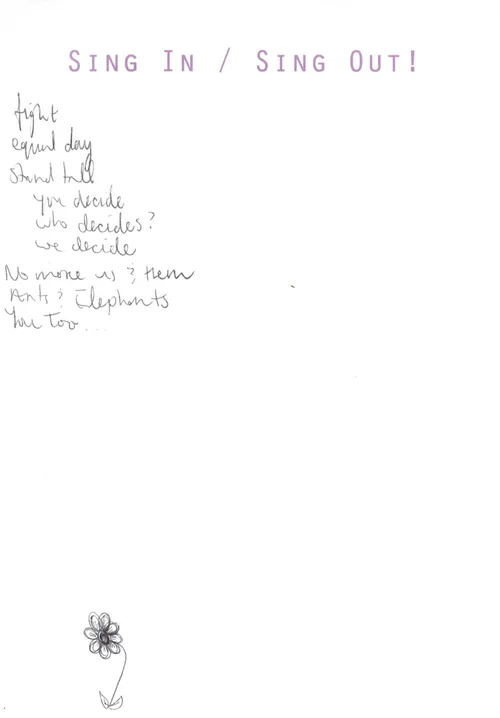 SING IN / SING OUT!
fight
equal day
stand tall
you decide
who decides?
we decide
No more us & them
Ants & Elephants
You Too...